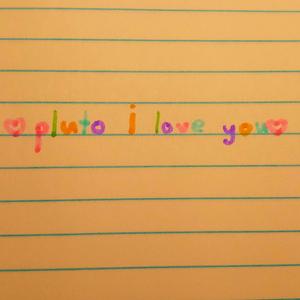 pluto i love you